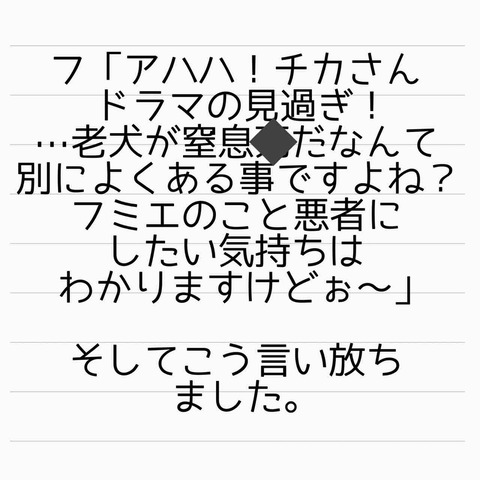 フ「アハハ！チカさん
ドラマの見過ぎ！
…老犬が窒息◆だなんて
別によくある事ですよね？
フミエのこと悪者に
したい気持ちは
わかりますけどぉ〜」
そしてこう言い放ち
ました。